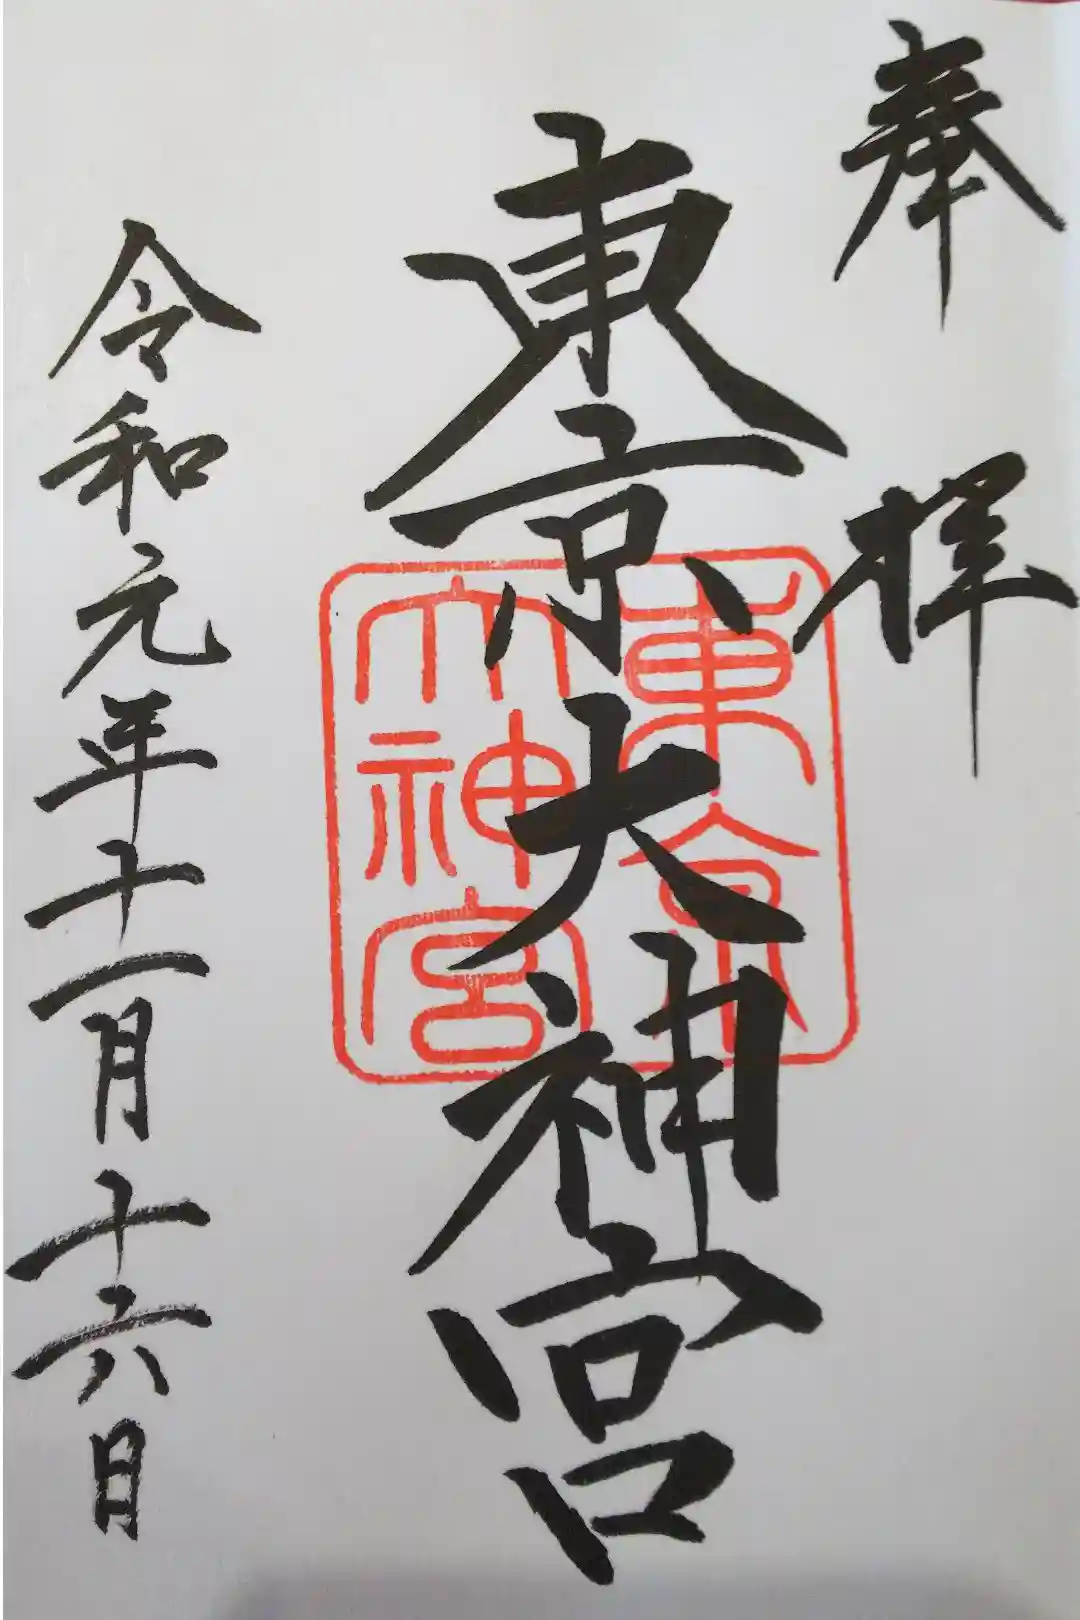 奉拝
東京大神宮
東京
大神宮
令和元年十一月十六日